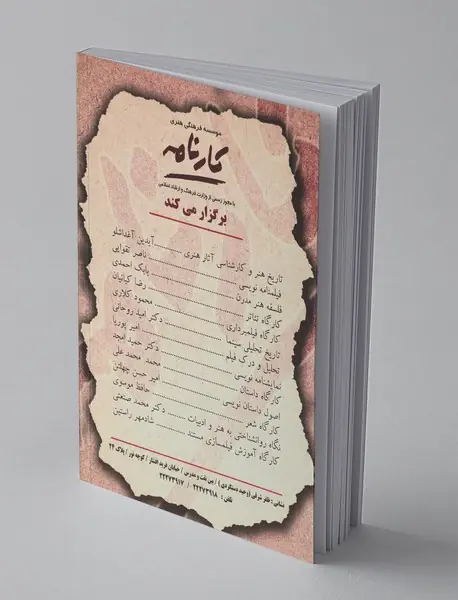 موسسه فرهنگی هنری
کارنامه
با مجوز رسمی از وزارت فرهنگ و ارشاد اسلامی
برگزار می کند
تاریخ هنر و کارشناسی آثار هنری ........ آیدین آغداشلو
فیلمنامه نویسی ........ ناصر تقوایی
فلسفه هنر مدرن ........ بابک احمدی
کارگاه تئاتر ........ رضا کیانیان
کارگاه فیلمبرداری ........ محمود کلاری
تاریخ تحلیلی سینما ........ دکتر امید روحانی
تحلیل و درک فیلم ........ امیر پوریا
نمایشنامه نویسی ........ دکتر حمید امجد
کارگاه داستان ........ محمد محمد علی
اصول داستان نویسی ........ امیر حسن چهلتن
کارگاه شعر ........ حافظ موسوی
نگاه روانشناختی به هنر و ادبیات ........ دکتر محمد صنعتی
کارگاه آموزش فیلمسازی مستند ........ شادمهر راستین
نشانی : ظفر شرقی (وحید دستگردی) / بین نفت و مدرس / خیابان فرید افشار / کوچه نور / پلاک ۲۴
تلفن :